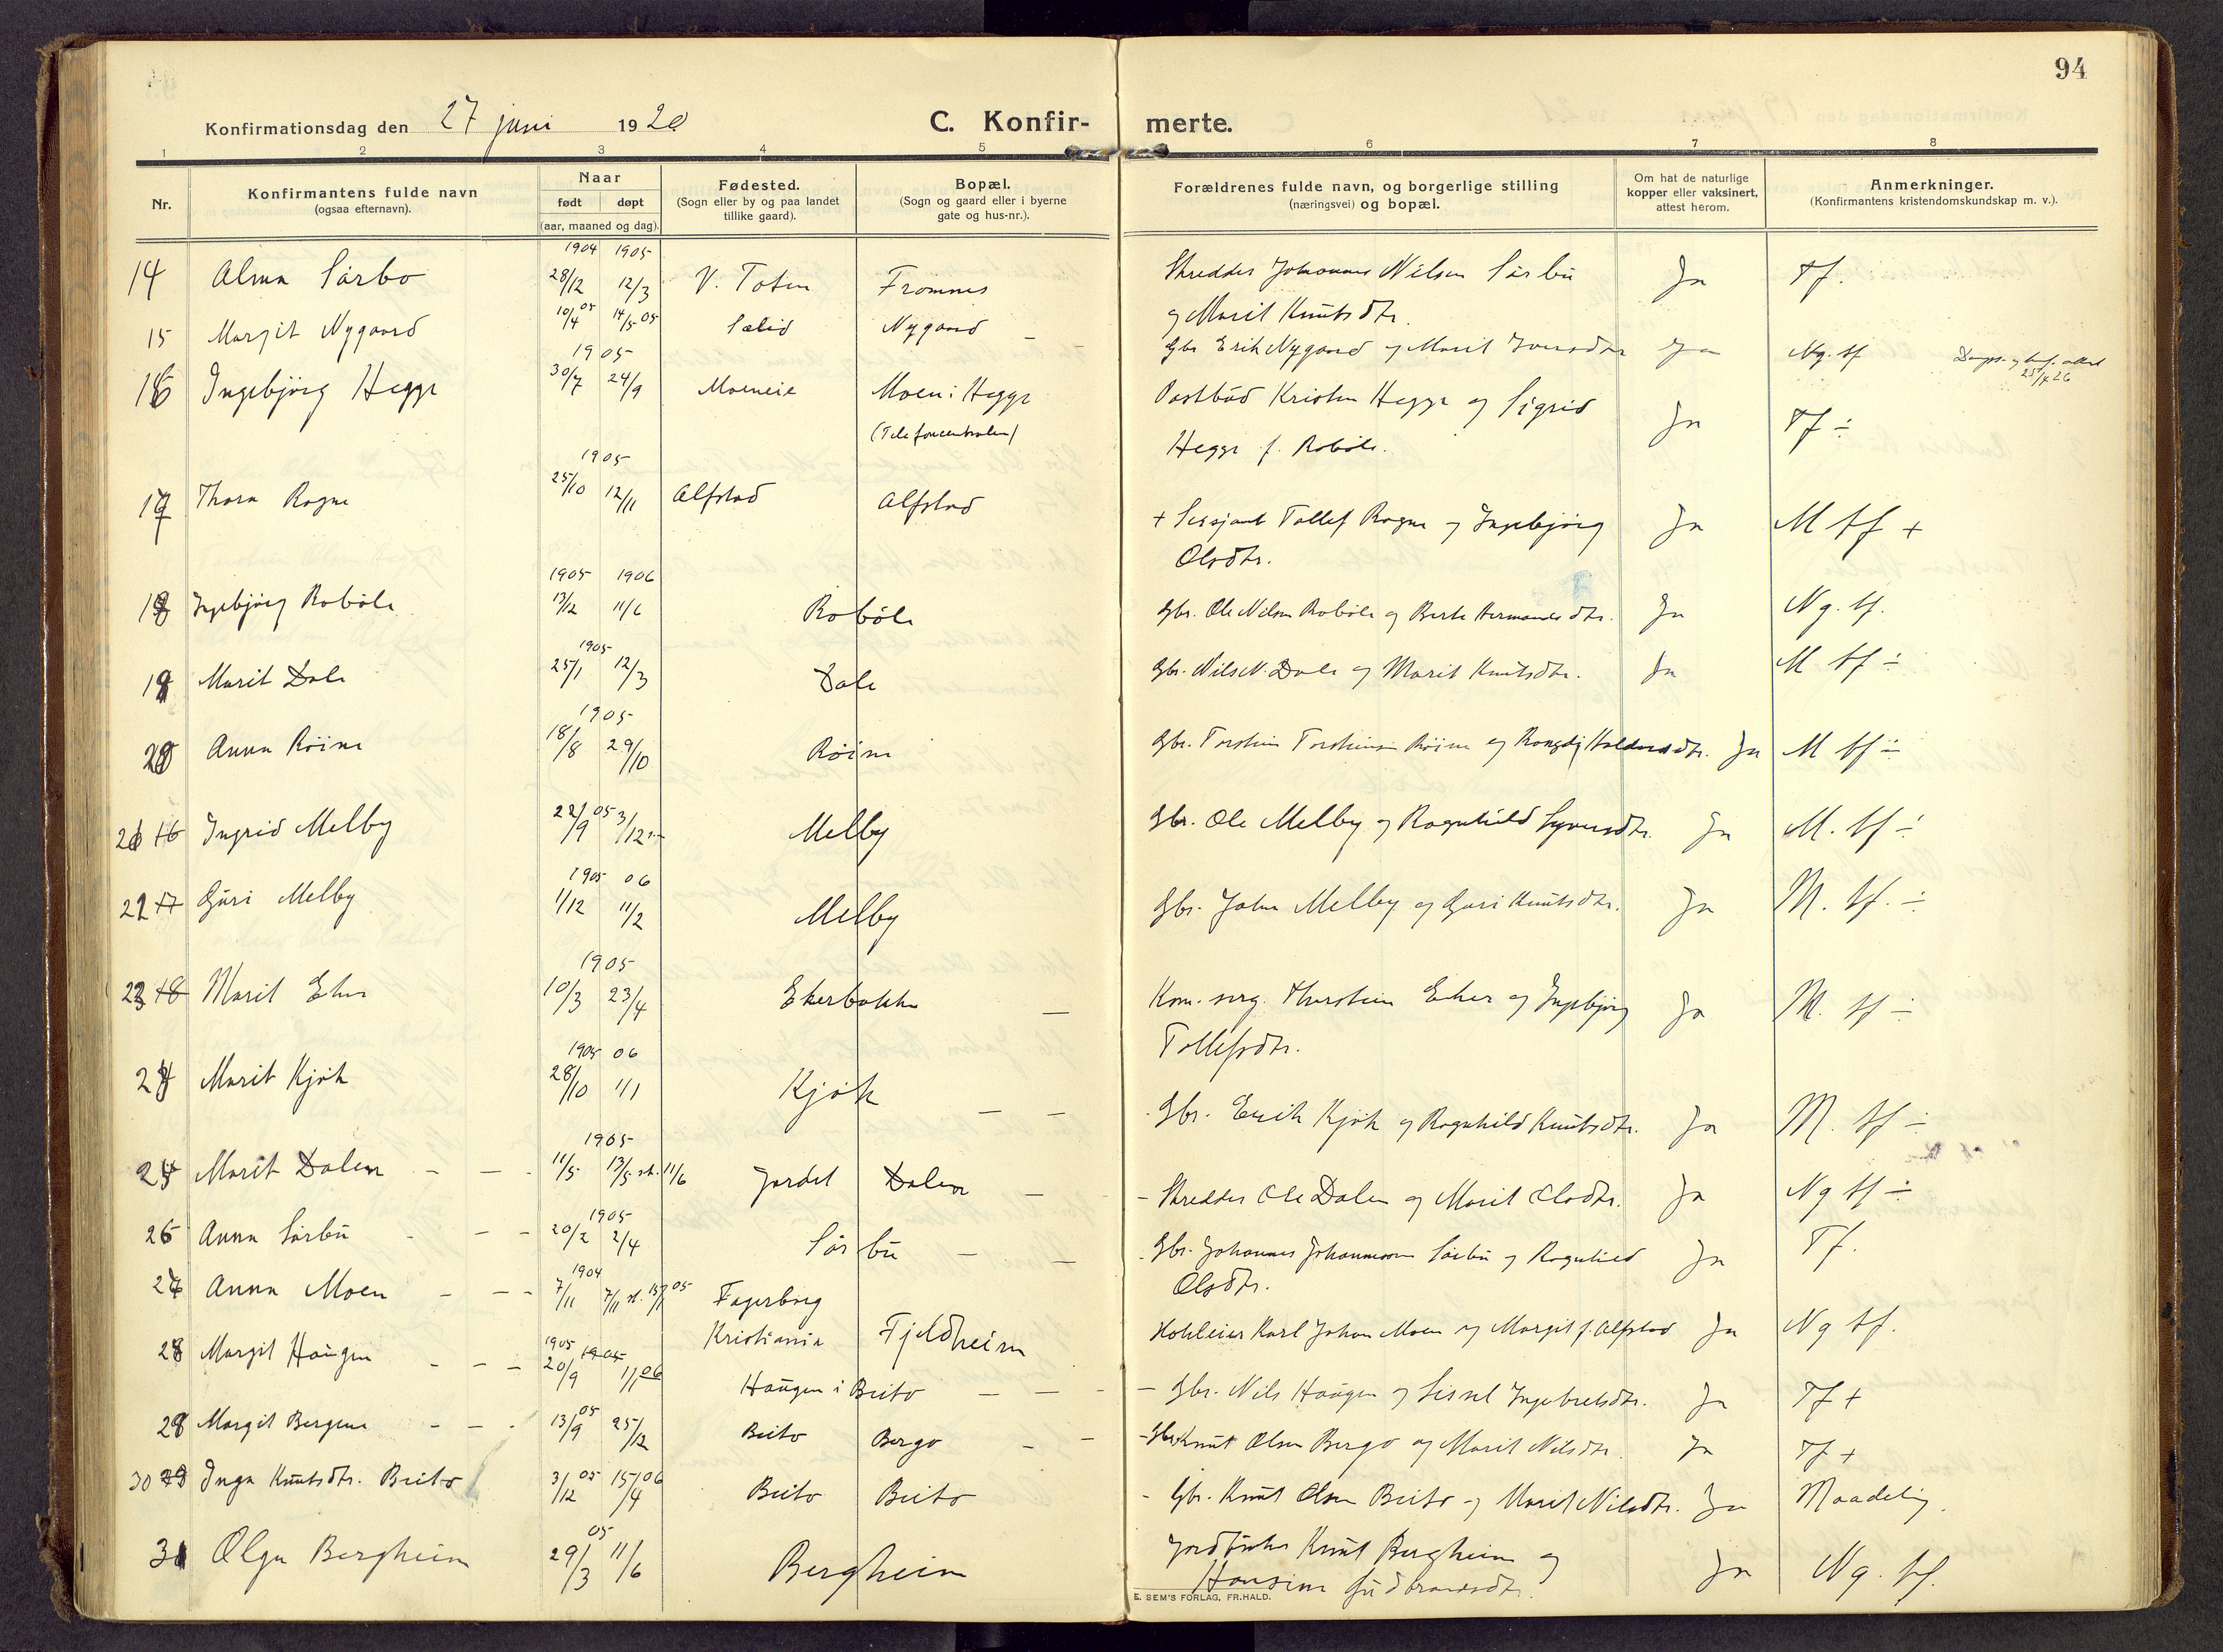 94
Konfirmationsdag den 27 juni 1920
C. Konfir-
merte.
1 2 3 4 5 6 7 8
Nr.
Konfirmantens fulde navn
(ogsaa efternavn).
Naar
født døpt
(aar, maaned og dag).
Fødested.
(Sogn eller by og paa landet
tillike gaard).
Bopæl.
(Sogn og gaard eller i byerne
gate og hus-nr.).
Forældrenes fulde navn, og borgerlige stilling
(næringsvei) og bopæl.
Om hat de naturlige
kopper eller vaksinert,
attest herom.
Anmerkninger.
(Konfirmantens kristendomskundskap m. v.).
1904 1905
14 Alma Sørbo 28/12 12/3 V. Toten Fromnes Skredder Johannes Nilsen Sørbu Ja Tf.
og Marit Knutsdtr.
15 Margit Nygaard 10/4 05 14/5 05 Sælid Nygaard Gbr Erik Nygaard og Marit Iversdtr Ja Ng. tf
25/4 26
1905
16 Ingebjörg Hegge 30/7 24/9 Moeneie Moen i Hegge Postbud Kristen Hegge og Sigrid Ja Tf ÷
(Telefoncentralen)
Hegge f. Robøle.
1905
17 Thora Rogne 25/10 12/11 Alfstad Alfstad + Sersjant Tollef Rogne og Ingebjörg Ja M tf +
Olsdtr.
1905 1906
18 Ingebjörg Robøle 13/12 11/6 Robøle Gbr. Ole Nilsen Robøle og Berte Hermandsdtr. Ja Ng. tf.
1905
19 Marit Dale 25/1 12/3 Dale Gbr. Nils N. Dale og Marit Knutsdtr. Ja M tf ÷
1905
20 Anna Röine 18/8 29/10 Röine Gbr. Torstein Torsteinsen Röine og Rangdi Haldorsdtr. Ja M tf ÷
21 16 Ingrid Melby 22/9 05 3/12 Melby Gbr. Ole Melby og Ragnhild Syversdtr. Ja M. tf ÷
1905 06
22 17 Guri Melby 1/12 11/2 Melby Gbr. John Melby og Guri Knutsdtr. Ja M. tf. ÷
1905
23 18 Marit Eker 10/3 23/4 Ekerbakke Kom. serg. Thorstein Eker og Ingebjörg Ja M. tf ÷
Tollefsdtr.
1905 06
24 Marit Kjök 28/10 1/1 Kjök Gbr. Erik Kjök og Ragnhild Knutsdtr. Ja M. tf ÷
1905
25 Marit Dalen 11/5 13/5 st. 11/6 Jordet Dalen Skredder Ole Dalen og Marit Olsdtr. Ja Ng tf ÷
1905
26 Anna Sørbu 20/2 2/4 Sørbu Gbr. Johannes Johannessen Sørbu og Ragnhild Ja Tf.
Olsdtr.
1904
27 Anna Moen 7/11 7/11 st. 15/1 05 Fagerborg
Kristiania Fjeldheim Hoteleier Karl Johan Moen og Margit f. Alfstad Ja Ng tf.
1905 1905
28 Margit Haugen 20/9 1/1 06 Haugen i Beito Gbr. Nils Haugen og Sissel Ingebretsdtr. Ja Tf +
29 Margit Bergene 13/9 05 25/12 Beito Bergo Gbr Knut Olsen Bergo og Marit Nilsdtr. Ja Tf +
30 29 Inga Knutsdtr. Beito 3/12 05 15/4 06 Beito Beito Gbr. Knut Olsen Beito og Marit Nilsdtr. Ja Maadelig.
05
31 Olga Bergheim 29/3 11/6 Bergheim Jordbruker Knut Bergheim og Ja Ng. tf.
Hansine Gudbrandsdtr.
E. SEM'S FORLAG, FR.HALD.